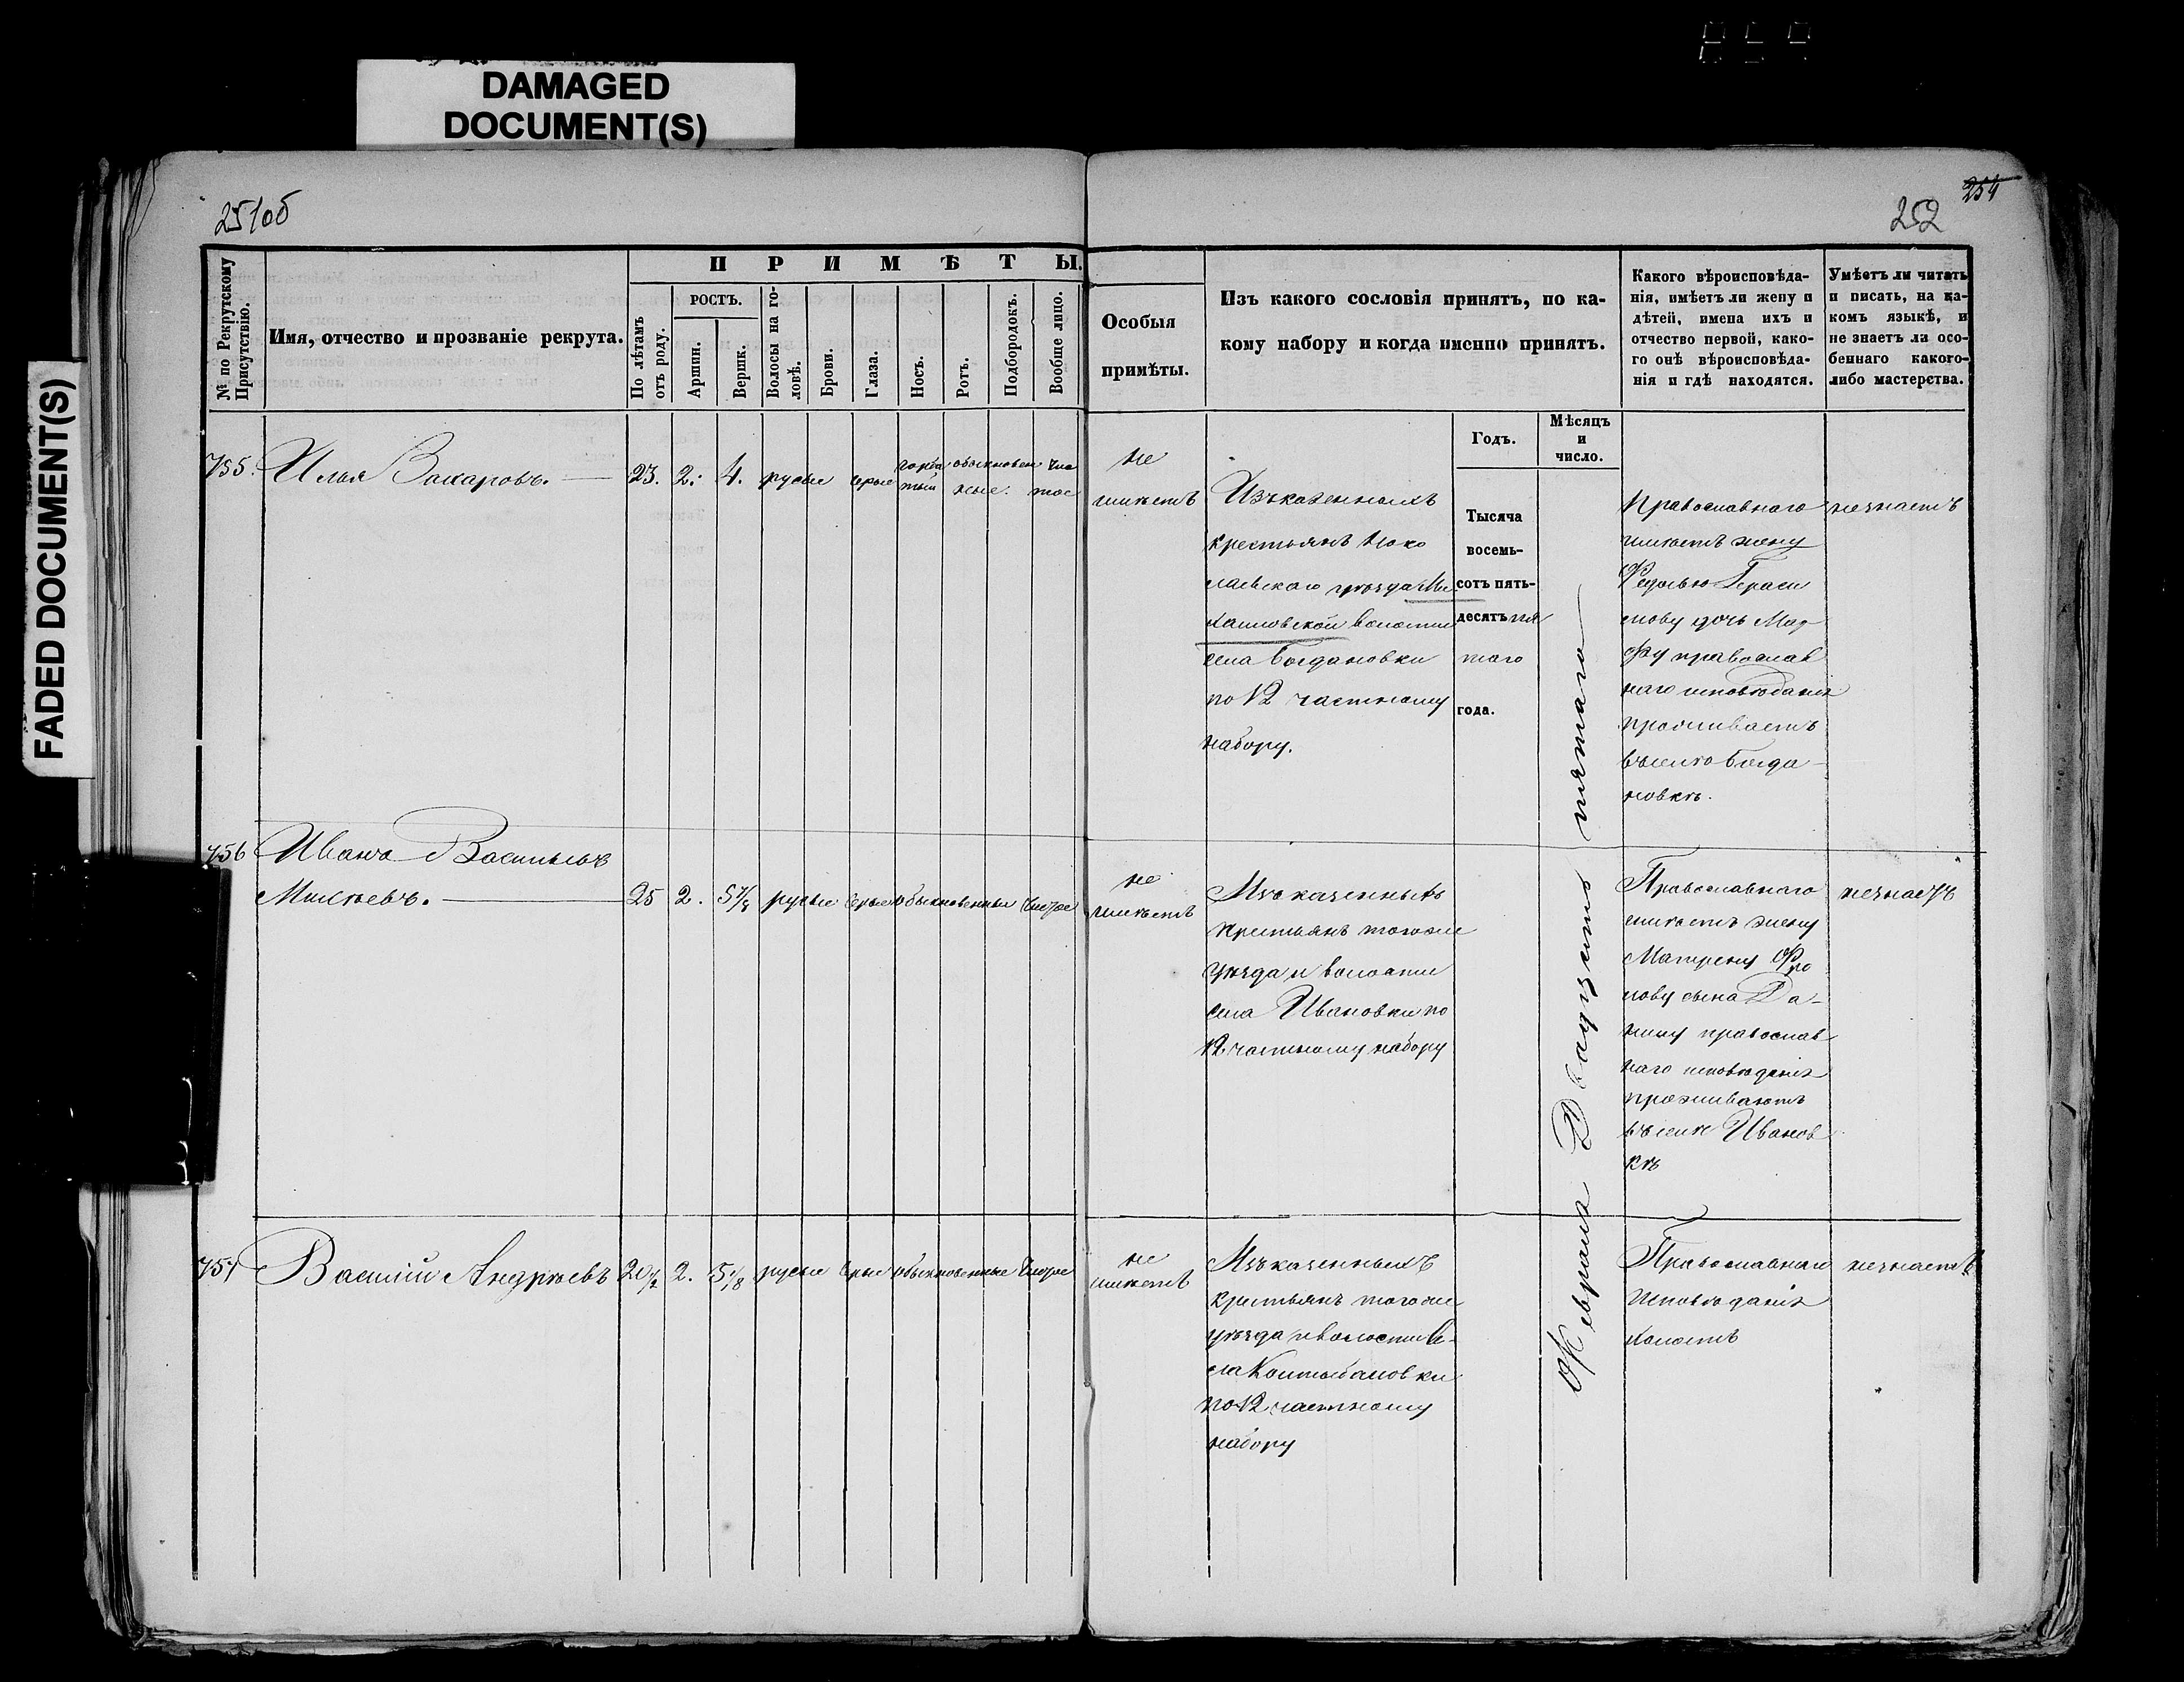 DAMAGED
DOCUMENT(S)
FADED DOCUMENT(S)
251об
254
252
№ по Рекрутскому
Присутствію.
Имя, отчество и прозваніе рекрута.
ПРИМѢТЫ.
По лѣтамъ
отъ роду.
РОСТЪ.
Аршин.
Вершк.
Волосы на го-
ловѣ.
Брови.
Глаза.
Носъ.
Ротъ.
Подбородокъ.
Вообще лицо.
Особыя
примѣты.
Изъ какого сословія принятъ, по ка-
кому набору и когда именно принятъ.
Какого вѣроисповѣда-
нія, имѣетъ ли жену и
дѣтей, имена ихъ и
отчество первой, како-
го онѣ вѣроисповѣда-
нія и гдѣ находятся.
Умѣетъ ли читать
и писать, на ка-
комъ языкѣ, и
не знаетъ ли осо-
беннаго какого-
либо мастерства.
Годъ.
Мѣсяцъ
и
число.
755.
Илья Захаровъ.
23. 2. 4. русые серые
горба
тый
обыкновен
ные.
чис
тое
не
имѣетъ
Изъ казенныхъ
крестьянъ Нико
лаевскаго уѣзда Ми
хайловской волости
села Богдановки
по 12 частному
набору.
Тысяча
восемь-
сотъ пять-
десятъ пя
таго
года.
Февраля Двадцать пятаго
Православнаго
имѣетъ жену
Федосью Гераси
мову дочь Мар
фу православ
наго исповѣданія
проживаетъ
въ селѣ Богда-
новкѣ.
незнаетъ
756
Иванъ Васильевъ
Мисѣевъ.
25 2. 5⅞ русые серые обыкновенные чистое
не
имѣетъ
Изъ казенныхъ
крестьянъ тогоже
уѣзда и волости
села Ивановки по
12 частному набору
Православнаго
имѣетъ жену
Матрену Фро
лову сына Да-
нилу православ
наго исповѣданія
проживаютъ
въ селѣ Иванов
кѣ
незнаетъ
757
Василій Андрѣевъ
20½ 2. 5⅛ русые серые обыкновенные чистое
не
имѣетъ
Изъ казенныхъ
крестьянъ тогоже
уѣзда и волости се-
ла Колтыбановки
по 12 частному
набору
Православнаго
Исповѣданія
холостъ
незнаетъ